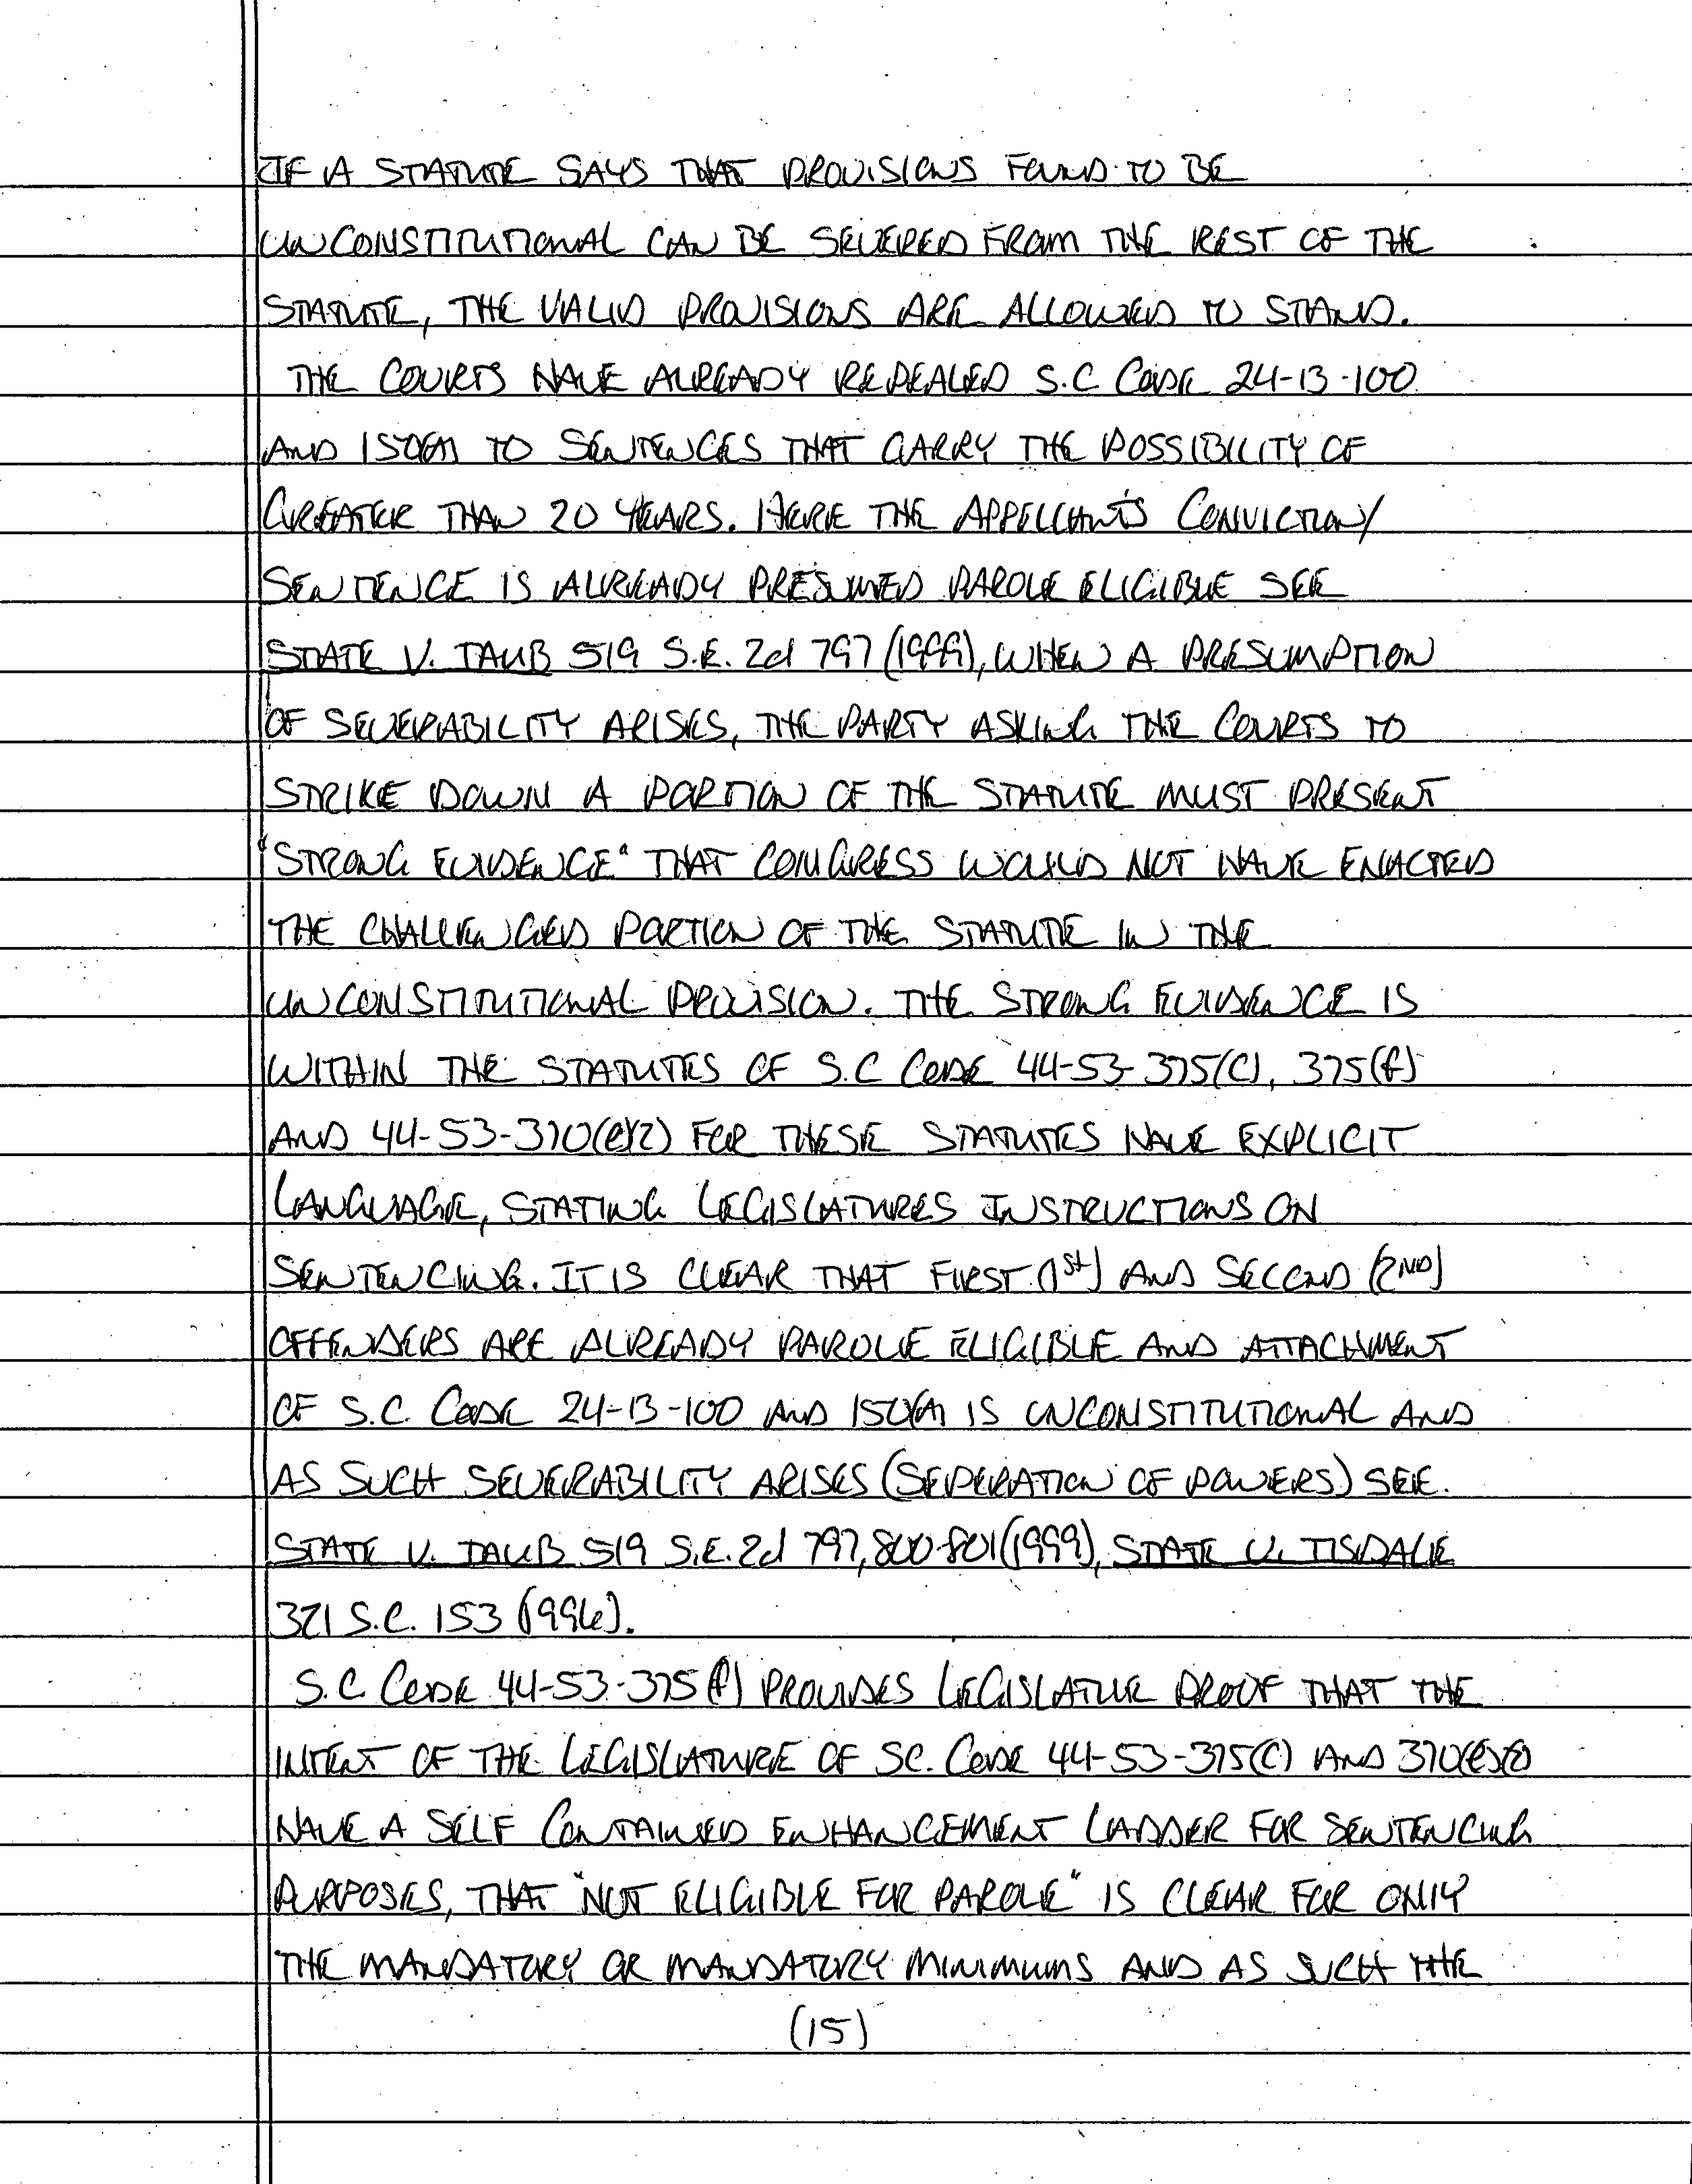 IF A STATUTE SAYS THAT PROVISIONS FOUND TO BE
UNCONSTITUTIONAL CAN BE SEVERED FROM THE REST OF THE
STATUTE, THE VALID PROVISIONS ARE ALLOWED TO STAND.
THE COURTS HAVE ALREADY REPEALED S.C CODE 24-13-100
AND 150(A) TO SENTENCES THAT CARRY THE POSSIBILITY OF
GREATER THAN 20 YEARS. HERE THE APPELLANT'S CONVICTION/
SENTENCE IS ALREADY PRESUMED PAROLE ELIGIBLE SEE
STATE V. TAUB 519 S.E. 2d 797 (1999), WHEN A PRESUMPTION
OF SEVERABILITY ARISES, THE PARTY ASKING THE COURTS TO
STRIKE DOWN A PORTION OF THE STATUTE MUST PRESENT
"STRONG EVIDENCE" THAT CONGRESS WOULD NOT HAVE ENACTED
THE CHALLENGED PORTION OF THE STATUTE IN THE
UNCONSTITUTIONAL PROVISION. THE STRONG EVIDENCE IS
WITHIN THE STATUTES OF S.C CODE 44-53-375(C), 375(F)
AND 44-53-370(e)(2) FOR THESE STATUTES HAVE EXPLICIT
LANGUAGE, STATING LEGISLATURES INSTRUCTIONS ON
SENTENCING. IT IS CLEAR THAT FIRST (1St) AND SECOND (2ND)
OFFENDERS ARE ALREADY PAROLE ELIGIBLE AND ATTACHMENT
OF S.C. CODE 24-13-100 AND 150(A) IS UNCONSTITUTIONAL AND
AS SUCH SEVERABILITY ARISES (SEPERATION OF POWERS) SEE.
STATE V. TAUB 519 S.E. 2d 797, 800-801 (1999), STATE V. TISDALE
321 S.C. 153 (1996).
S.C. CODE 44-53-375(F) PROVIDES LEGISLATIVE PROOF THAT THE
INTENT OF THE LEGISLATURE OF SC. CODE 44-53-375(C) AND 370(e)
HAVE A SELF CONTAINED ENHANCEMENT LADDER FOR SENTENCING
PURPOSES, THAT "NOT ELIGIBLE FOR PAROLE" IS CLEAR FOR ONLY
THE MANDATORY OR MANDATORY MINIMUMS AND AS SUCH THE
(15)